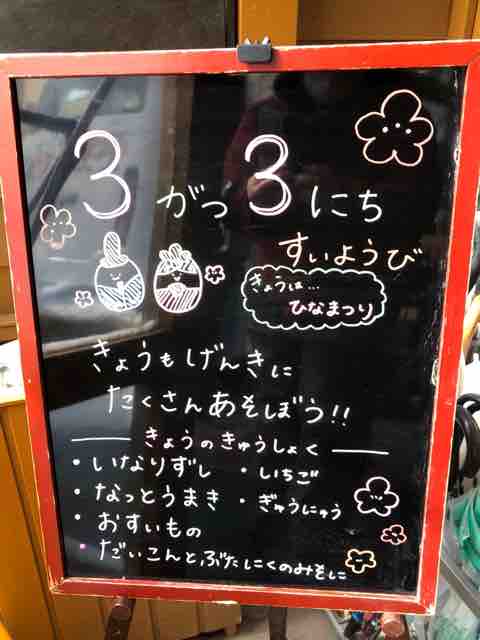 3がつ3にち
すいようび
きょうは…
ひなまつり
きょうもげんきに
たくさんあそぼう!!
きょうのきゅうしょく
・いなりずし ・いちご
・なっとうまき ・ぎゅうにゅう
・おすいもの
・だいこんとぶたにくのみそに